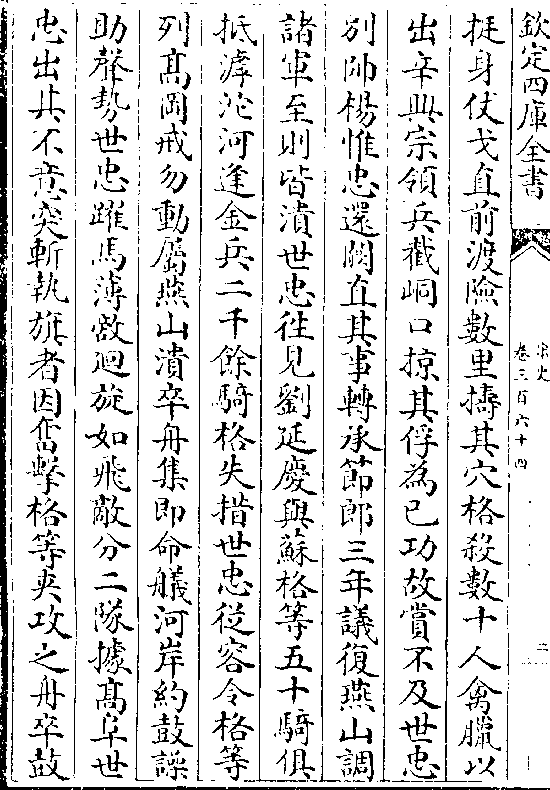 欽定四庫全書
宋史
卷三百六十四
二
挺身仗戈直前渡險數里擣其穴格殺數十人禽臘以
出辛興宗領兵截峒口掠其俘為已功故賞不及世忠
别帥楊惟忠還闕直其事轉承節郎三年議復燕山調
諸軍至則皆潰世忠往見劉延慶與蘇格等五十騎俱
抵滹沱河逢金兵二千餘騎格失措世忠從容令格等
列髙岡戒勿動屬燕山潰卒舟集即命艤河岸約鼓譟
助聲勢世忠躍馬薄敵廻旋如飛敵分二隊據髙阜世
忠出其不意突斬執旗者因奮擊格等夾攻之舟卒鼓